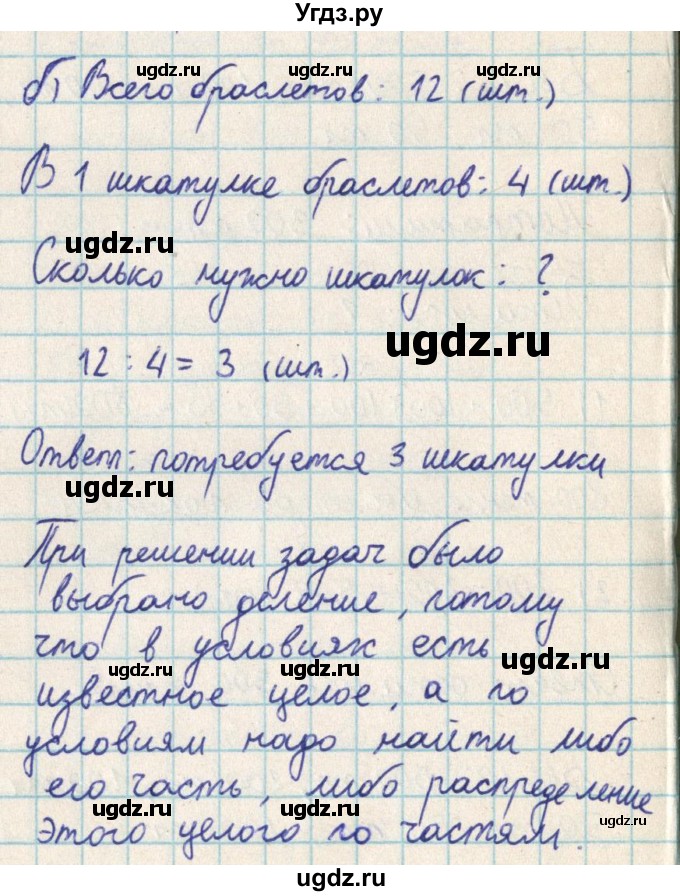 Угдз.ру
ugdz.ru ugdz.ru
б) Всего браслетов: 12 (шт.)
ugdz.ru ugdz.ru
В 1 шкатулке браслетов: 4 (шт.)
ugdz.ru
Сколько нужно шкатулок: ?
ugdz.ru
12 : 4 = 3 (шт.)
Ответ: потребуется 3 шкатулки
ugdz.ru
При решении задач было
ugdz.ru ugdz.ru
выбрано деление, потому
что в условиях есть
ugdz.ru ugdz.ru ugdz.ru
известное целое, а по
условиям надо найти либо
его часть, либо распределение
ugdz.ru ugdz.ru ugdz.ru
этого целого по частям.
ugdz.ru